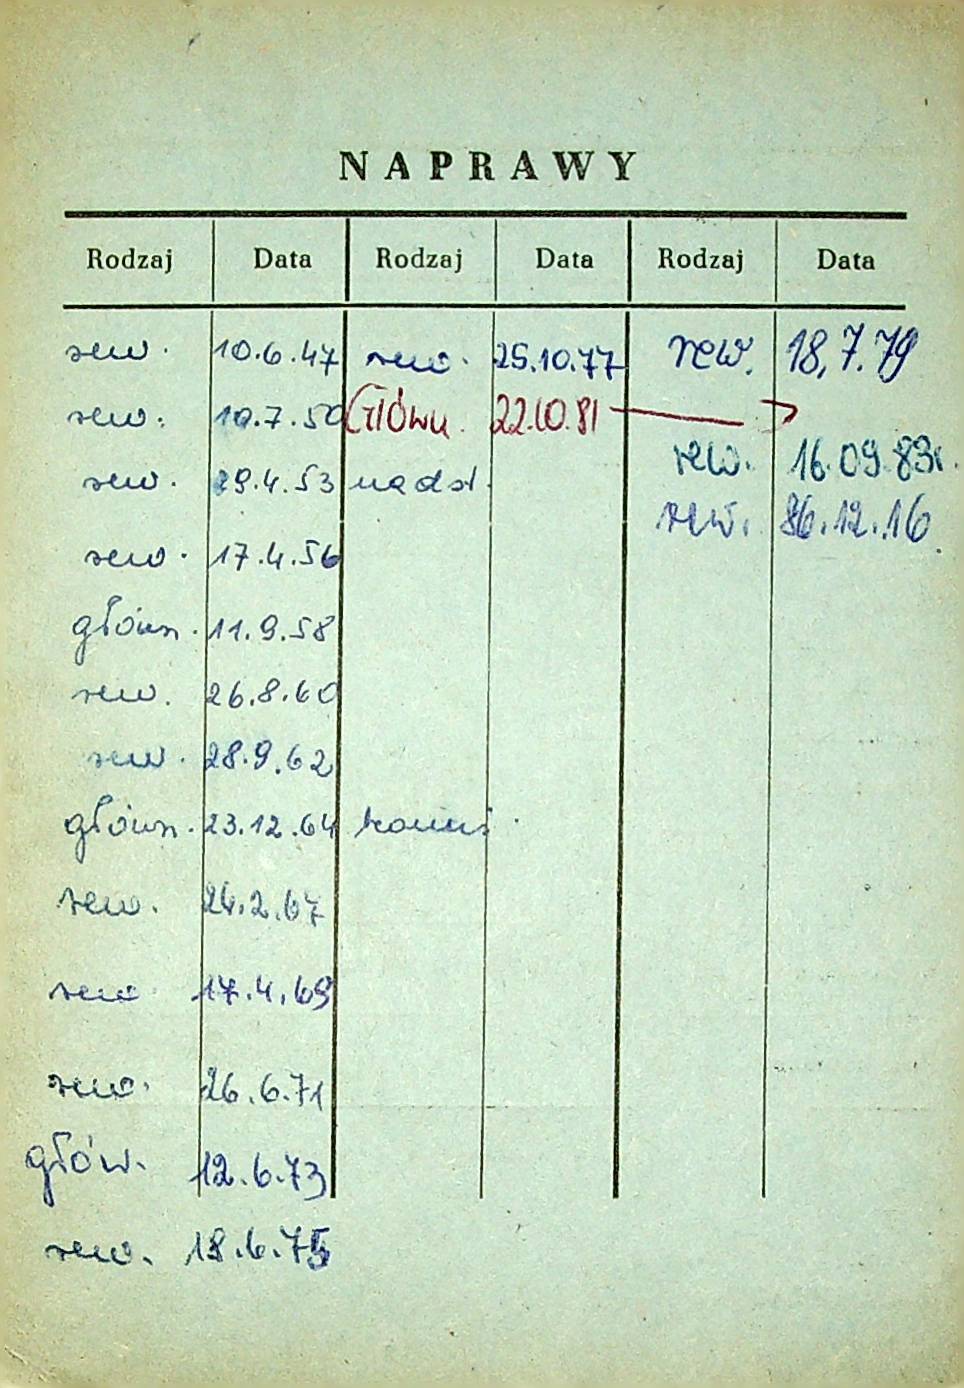 NAPRAWY
Rodzaj Data Rodzaj Data Rodzaj Data
rew. 10.6.47 rew. 25.10.77 rew. 18.7.79
rew. 10.7.50 Główn. 22.10.81
rew. 16.09.83r.
rew. 29.4.53 nadst.
rew. 86.12.16
rew. 17.4.56
główn. 11.9.58
rew. 26.8.60
rew. 28.9.62
główn. 23.12.64
rew. 24.2.67
rew. 17.4.69
rew. 26.6.71
głów. 12.6.73
rew. 18.6.75